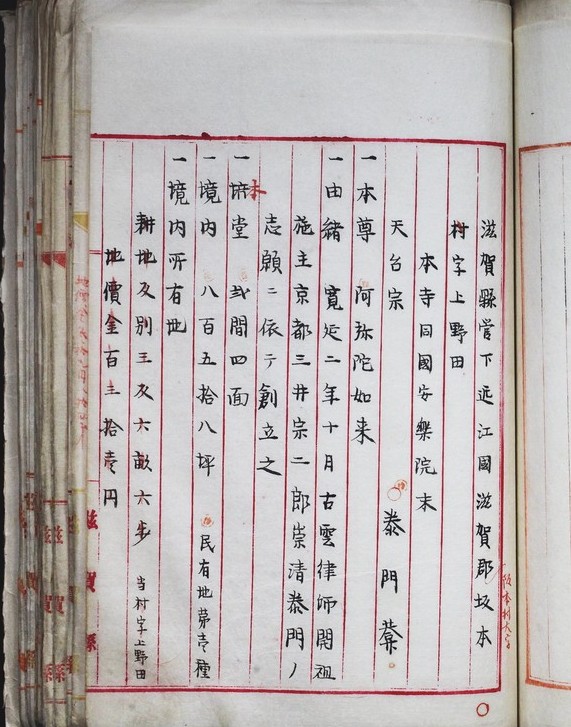 滋賀縣管下近江國滋賀郡坂本
村字上野田
本寺同國安樂院末
天台宗
泰門菴
一本尊 阿弥陀如来
一由緒 寛延二年十月古雲律師開祖
施主京都三井宗二郎崇清泰門ノ
志願ニ依テ創立之
一本堂 弐間四面
一境内 八百五拾八坪 民有地第壱種
一境内所有地
耕地反別三反六畝六歩 当村字上野田
地價金百三拾壱円
滋賀縣